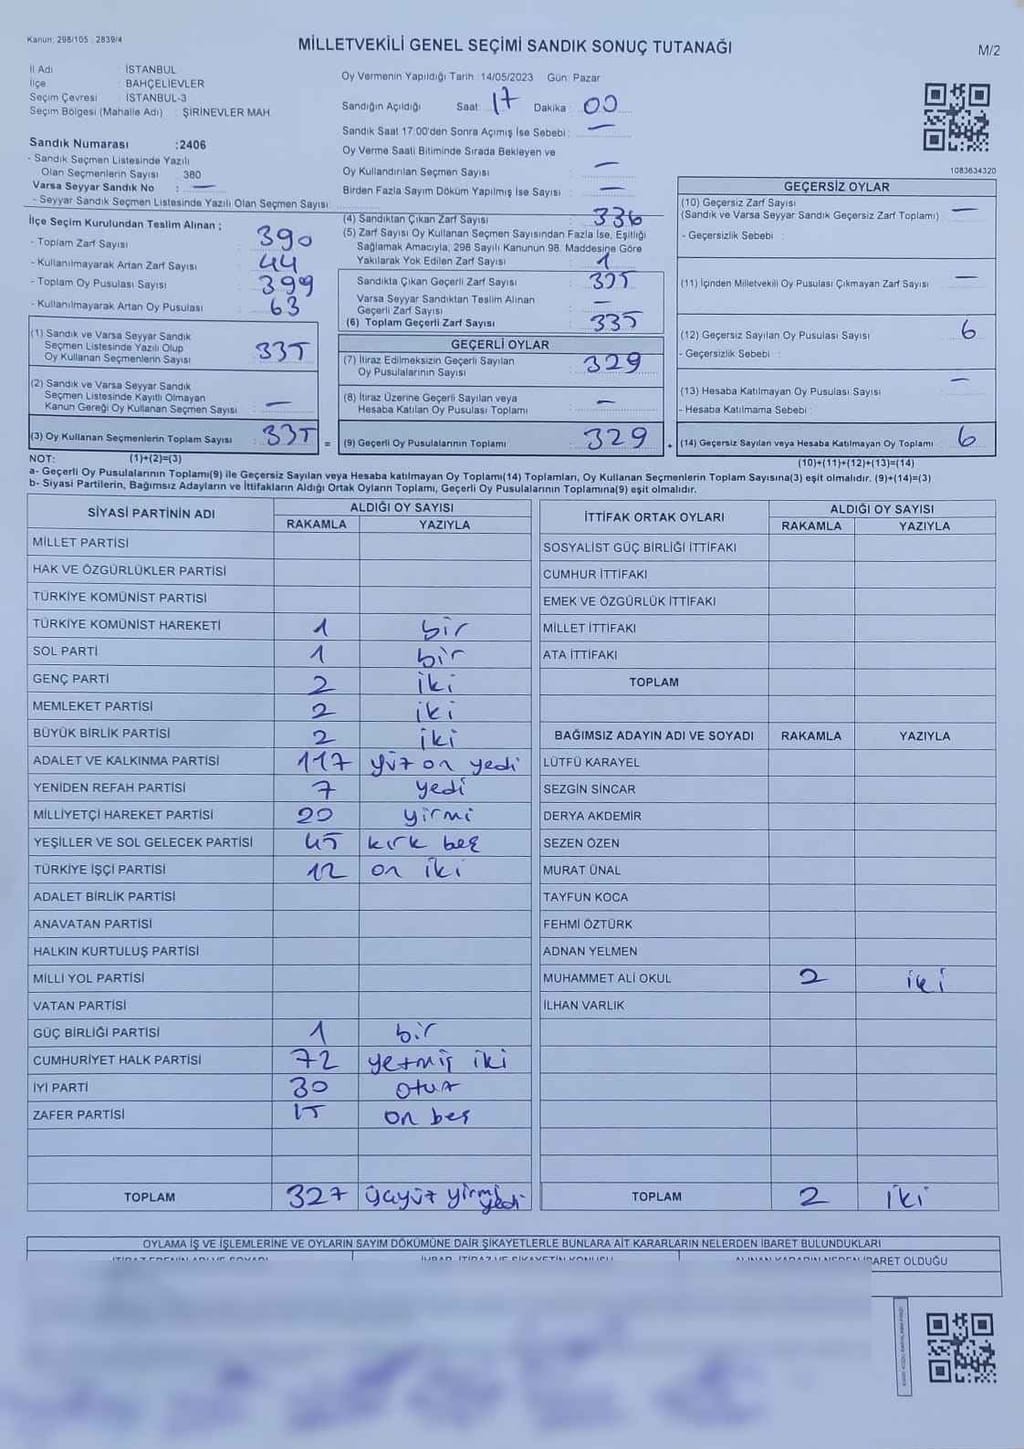 Kanun: 298/105 : 2839/4
MİLLETVEKİLİ GENEL SEÇİMİ SANDIK SONUÇ TUTANAĞI
M/2
İl Adı : İSTANBUL
İlçe : BAHÇELİEVLER
Seçim Çevresi : İSTANBUL-3
Seçim Bölgesi (Mahalle Adı) : ŞİRİNEVLER MAH
Sandık Numarası :2406
- Sandık Seçmen Listesinde Yazılı
Olan Seçmenlerin Sayısı : 380
Varsa Seyyar Sandık No : —
- Seyyar Sandık Seçmen Listesinde Yazılı Olan Seçmen Sayısı:
Oy Vermenin Yapıldığı Tarih :14/05/2023 Gün: Pazar
Sandığın Açıldığı Saat: 17 Dakika : 00
Sandık Saat 17:00'den Sonra Açımış İse Sebebi : —
Oy Verme Saati Bitiminde Sırada Bekleyen ve
Oy Kullandırılan Seçmen Sayısı : —
Birden Fazla Sayım Döküm Yapılmış İse Sayısı : —
1083634320
İlçe Seçim Kurulundan Teslim Alınan ;
- Toplam Zarf Sayısı : 390
- Kullanılmayarak Artan Zarf Sayısı : 44
- Toplam Oy Pusulası Sayısı : 399
- Kullanılmayarak Artan Oy Pusulası : 63
(1) Sandık ve Varsa Seyyar Sandık
Seçmen Listesinde Yazılı Olup
Oy Kullanan Seçmenlerin Sayısı : 335
(2) Sandık ve Varsa Seyyar Sandık
Seçmen Listesinde Kayıtlı Olmayan
Kanun Gereği Oy Kullanan Seçmen Sayısı : —
(3) Oy Kullanan Seçmenlerin Toplam Sayısı : 335
(4) Sandıktan Çıkan Zarf Sayısı : 336
(5) Zarf Sayısı Oy Kullanan Seçmen Sayısından Fazla İse, Eşitliği
Sağlamak Amacıyla, 298 Sayılı Kanunun 98. Maddesine Göre
Yakılarak Yok Edilen Zarf Sayısı : 1
Sandıkta Çıkan Geçerli Zarf Sayısı : 335
Varsa Seyyar Sandıktan Teslim Alınan
Geçerli Zarf Sayısı : —
(6) Toplam Geçerli Zarf Sayısı : 335
GEÇERLİ OYLAR
(7) İtiraz Edilmeksizin Geçerli Sayılan
Oy Pusulalarının Sayısı : 329
(8) İtiraz Üzerine Geçerli Sayılan veya
Hesaba Katılan Oy Pusulası Toplamı : —
= (9) Geçerli Oy Pusulalarının Toplamı : 329
GEÇERSİZ OYLAR
(10) Geçersiz Zarf Sayısı
(Sandık ve Varsa Seyyar Sandık Geçersiz Zarf Toplamı) : —
- Geçersizlik Sebebi :
(11) İçinden Milletvekili Oy Pusulası Çıkmayan Zarf Sayısı : —
(12) Geçersiz Sayılan Oy Pusulası Sayısı : 6
- Geçersizlik Sebebi :
(13) Hesaba Katılmayan Oy Pusulası Sayısı : —
- Hesaba Katılmama Sebebi :
(14) Geçersiz Sayılan veya Hesaba Katılmayan Oy Toplamı : 6
NOT: (1)+(2)=(3)
(10)+(11)+(12)+(13)=(14)
a- Geçerli Oy Pusulalarının Toplamı(9) ile Geçersiz Sayılan veya Hesaba katılmayan Oy Toplamı(14) Toplamları, Oy Kullanan Seçmenlerin Toplam Sayısına(3) eşit olmalıdır. (9)+(14)=(3)
b- Siyasi Partilerin, Bağımsız Adayların ve İttifakların Aldığı Ortak Oyların Toplamı, Geçerli Oy Pusulalarının Toplamına(9) eşit olmalıdır.
SİYASİ PARTİNİN ADI ALDIĞI OY SAYISI
RAKAMLA YAZIYLA
MİLLET PARTİSİ
HAK VE ÖZGÜRLÜKLER PARTİSİ
TÜRKİYE KOMÜNİST PARTİSİ
TÜRKİYE KOMÜNİST HAREKETİ 1 bir
SOL PARTİ 1 bir
GENÇ PARTİ 2 iki
MEMLEKET PARTİSİ 2 iki
BÜYÜK BİRLİK PARTİSİ 2 iki
ADALET VE KALKINMA PARTİSİ 117 yüz on yedi
YENİDEN REFAH PARTİSİ 7 yedi
MİLLİYETÇİ HAREKET PARTİSİ 20 yirmi
YEŞİLLER VE SOL GELECEK PARTİSİ 45 kırk beş
TÜRKİYE İŞÇİ PARTİSİ 12 on iki
ADALET BİRLİK PARTİSİ
ANAVATAN PARTİSİ
HALKIN KURTULUŞ PARTİSİ
MİLLİ YOL PARTİSİ
VATAN PARTİSİ
GÜÇ BİRLİĞİ PARTİSİ 1 bir
CUMHURİYET HALK PARTİSİ 72 yetmiş iki
İYİ PARTİ 30 otuz
ZAFER PARTİSİ 15 on beş
TOPLAM 327 üçyüz yirmi yedi
İTTİFAK ORTAK OYLARI ALDIĞI OY SAYISI
RAKAMLA YAZIYLA
SOSYALİST GÜÇ BİRLİĞİ İTTİFAKI
CUMHUR İTTİFAKI
EMEK VE ÖZGÜRLÜK İTTİFAKI
MİLLET İTTİFAKI
ATA İTTİFAKI
TOPLAM
BAĞIMSIZ ADAYIN ADI VE SOYADI RAKAMLA YAZIYLA
LÜTFÜ KARAYEL
SEZGİN SİNCAR
DERYA AKDEMİR
SEZEN ÖZEN
MURAT ÜNAL
TAYFUN KOCA
FEHMİ ÖZTÜRK
ADNAN YELMEN
MUHAMMET ALİ OKUL 2 iki
İLHAN VARLIK
TOPLAM 2 iki
OYLAMA İŞ VE İŞLEMLERİNE VE OYLARIN SAYIM DÖKÜMÜNE DAİR ŞİKAYETLERLE BUNLARA AİT KARARLARIN NELERDEN İBARET BULUNDUKLARI
OLDUĞU